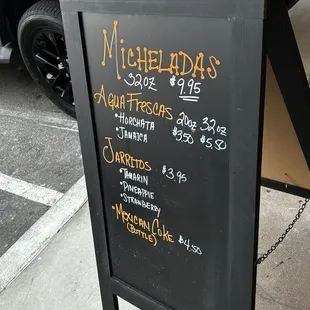 MICHELADAS
32oz $9.95
AGUA FRESCAS 20oz 32oz
•HORCHATA $3.50 $5.50
•JAMAICA
JARRITOS $3.95
•TAMARIN
•PINEAPPLE
•STRAWBERRY
•MEXICAN COKE $4.50
(BOTTLE)